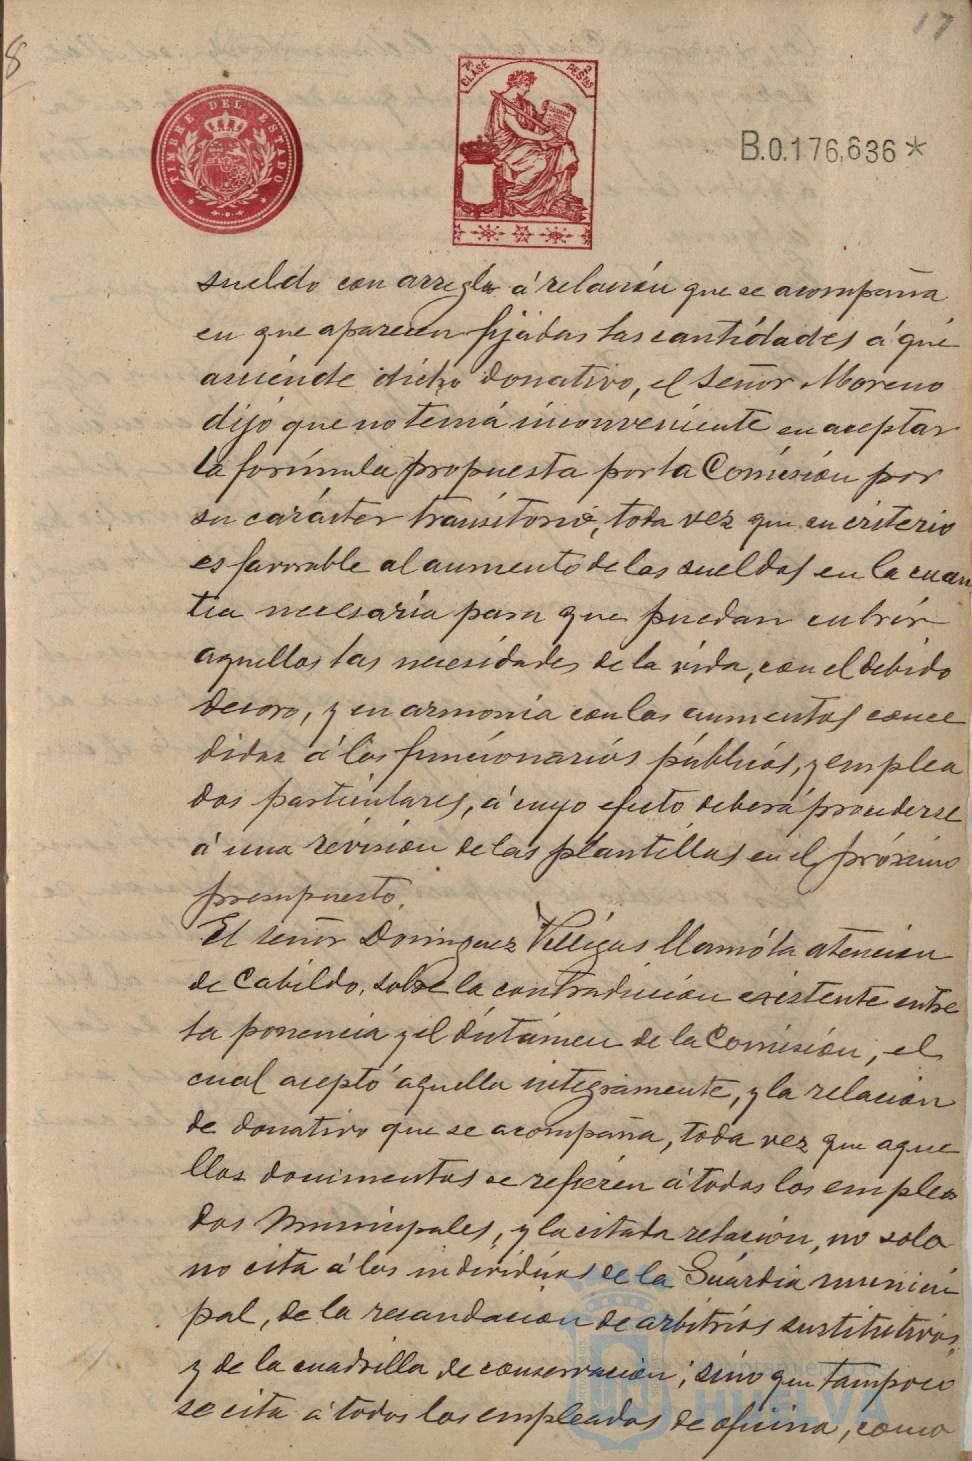 8
17
TIMBRE DEL ESTADO
7ª CLASE 2 PESETAS
B.0.176,636*
sueldo con arreglo á relación que se acompaña
en que aparecen fijadas las cantidades á que
asciende dicho donativo, el señor Moreno
dijo que no tenia inconveniente en aceptar
la formula propuesta por la Comisión por
su carácter transitorio, toda vez que su criterio
es favorable al aumento de los sueldos en la cuan
tia necesaria para que puedan cubrir
aquellos las necesidades de la vida, con el debido
decoro, y en armonia con los aumentos conce
didos á los funcionarios públicos, y emplea
dos particulares, á cuyo efecto deberá procederse
á una revisión de las plantillas en el próximo
presupuesto.
El señor Dominguez Villegas llamó la atención
de Cabildo, sobre la contradición existente entre
la ponencia y el dictámen de la Comisión, el
cual aceptó aquella integramente, y la relación
de donativo que se acompaña, toda vez que aque
llos documentos se refieren á todos los emplea
dos municipales, y la citada relación, no solo
no cita á los individuos de la Guardia munici
pal, de la recaudación de arbitrios sustitutivos,
y de la cuadrilla de conservación; sino que tampoco
se cita á todos los empleados de oficina, como
Ayuntamiento de
HUELVA